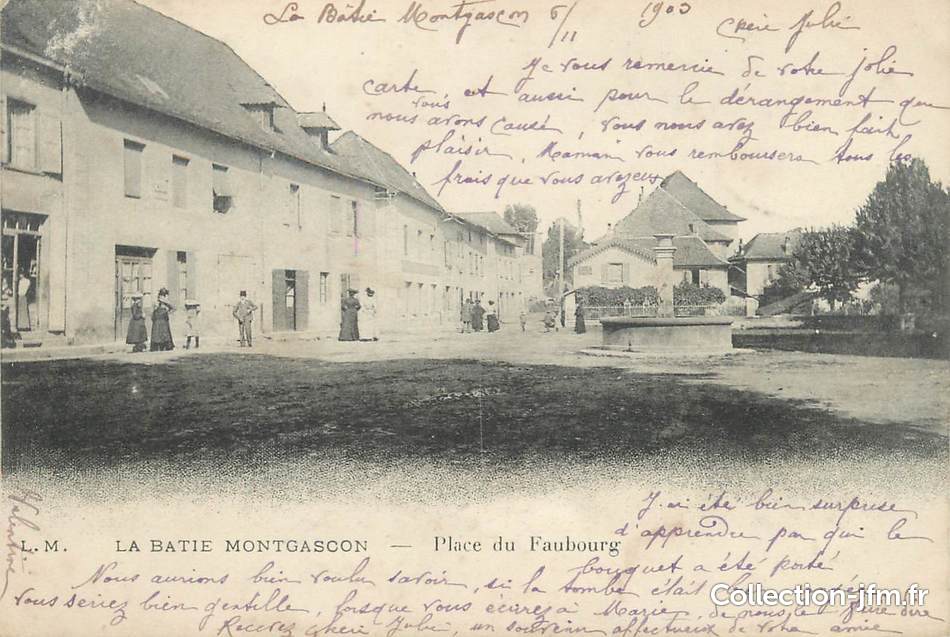 La Bâtie Montgascon 6/11 1903
Chère Julie
Je vous remercie de votre jolie
carte et aussi pour le dérangement que
nous vous avons causé, vous nous avez bien fait
plaisir, Maman vous remboursera tous les
frais que vous avez eu
J'ai été bien surprise
d'apprendre par qui le
bouquet a été porté
Valentine
L. M. LA BATIE MONTGASCON — Place du Faubourg
Nous aurions bien voulu savoir, si la tombe était
vous seriez bien gentille, lorsque vous écrirez à Marie, de nous le faire dire
Recevez chère Julie, un souvenir affectueux de votre amie
Collection-jfm.fr